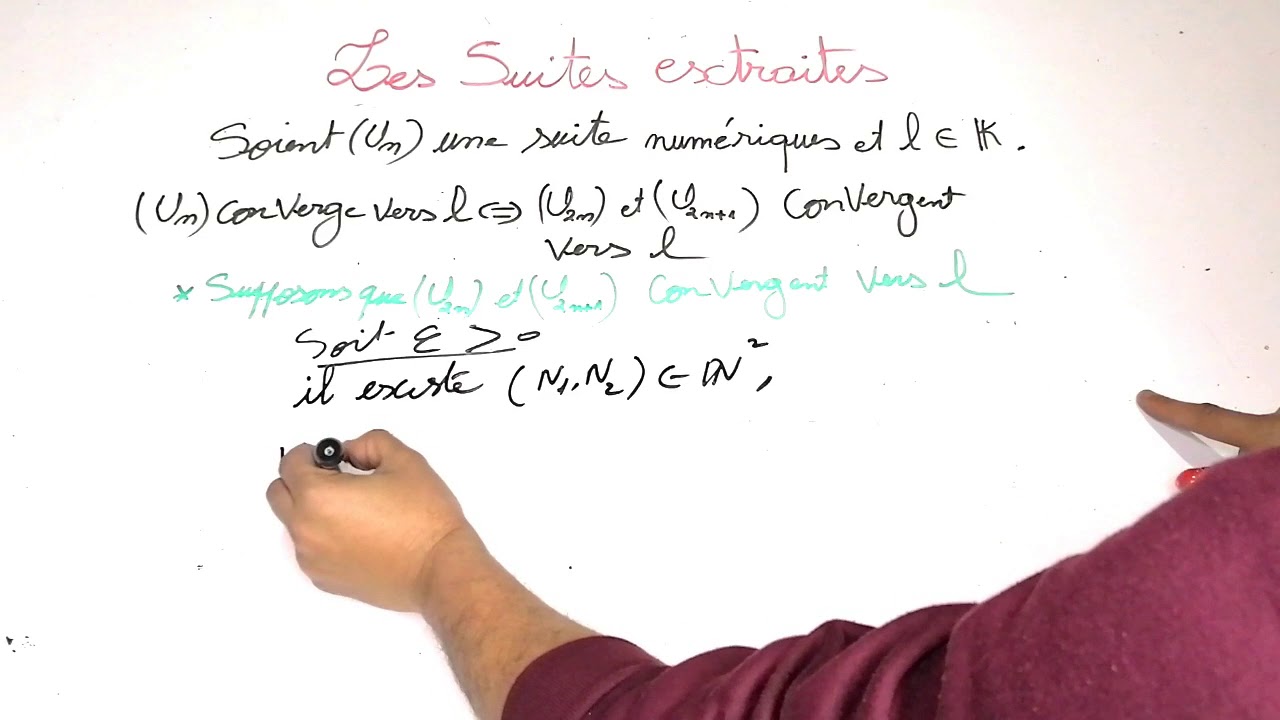 Les Suites extraites
Soient (Un) une suite numériques et l ∈ 𝕂.
(Un) converge vers l ⇔ (U2n) et (U2n+1) convergent
vers l
* Supposons que (U2n) et (U2n+1) convergent vers l
Soit ε > 0
il existe (N1, N2) ∈ ℕ²,